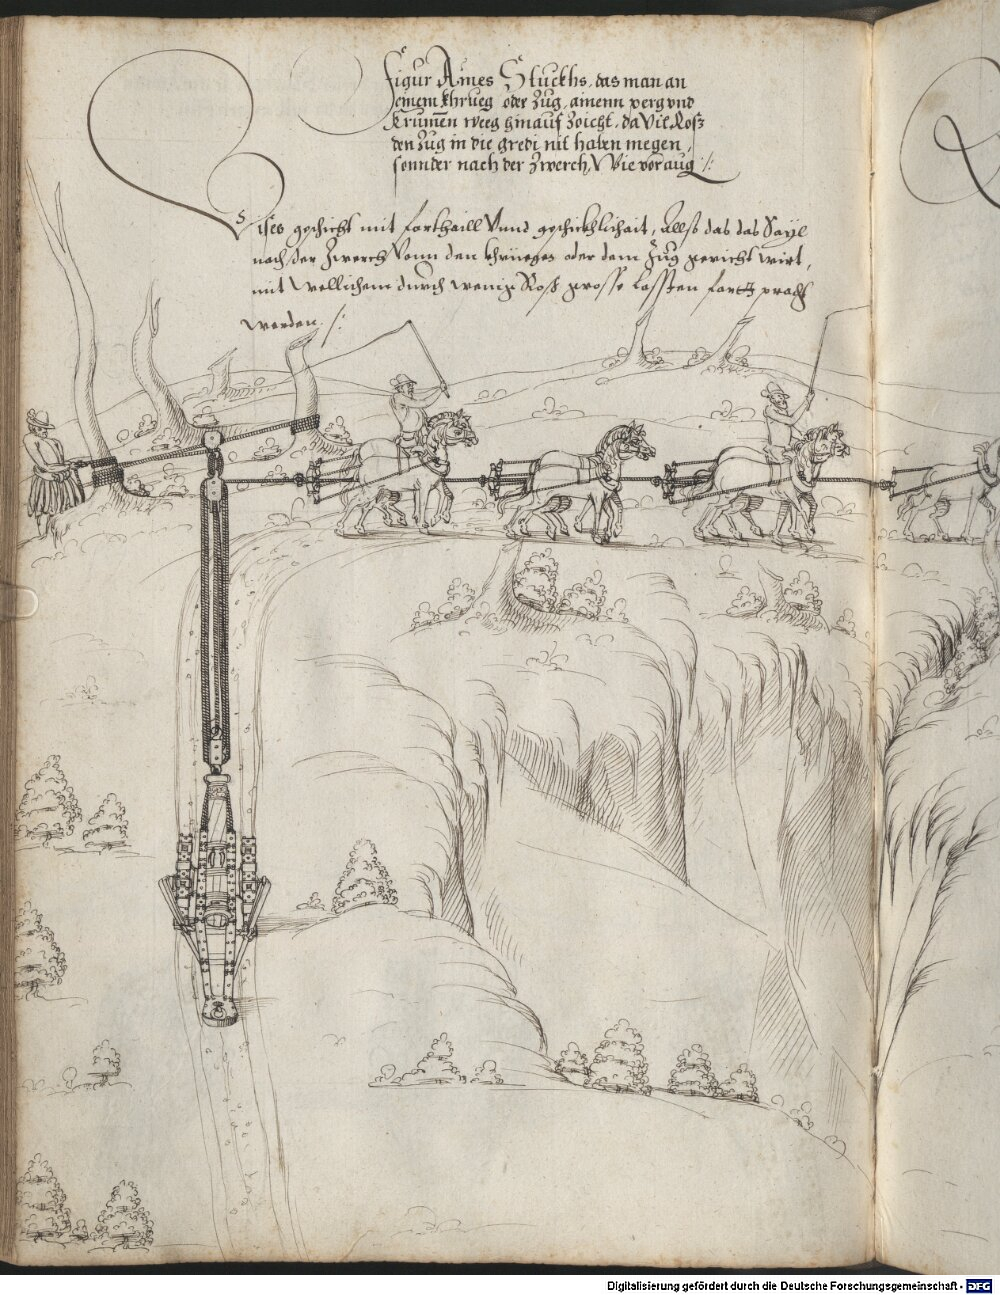 Figur Aines Stuckhs, das man an
einem khrueg oder Zug, ainenn perg vnd
Krumen weeg hinauf Zeicht, da Vil Ross
den Zug in die gredi nit haben megen,
sonnder nach der Zwerch, Wie vor aug /:
Dises geschicht mit forthaill Vnnd geschickhlichait, Allss das das Sayl
nach der Zwerch Vonn den khrueges oder dem Zug gericht wirt,
mit Wellichem durch wenig Ross grosse Lassten fort pracht
werden. /:
Digitalisierung gefördert durch die Deutsche Forschungsgemeinschaft - DFG